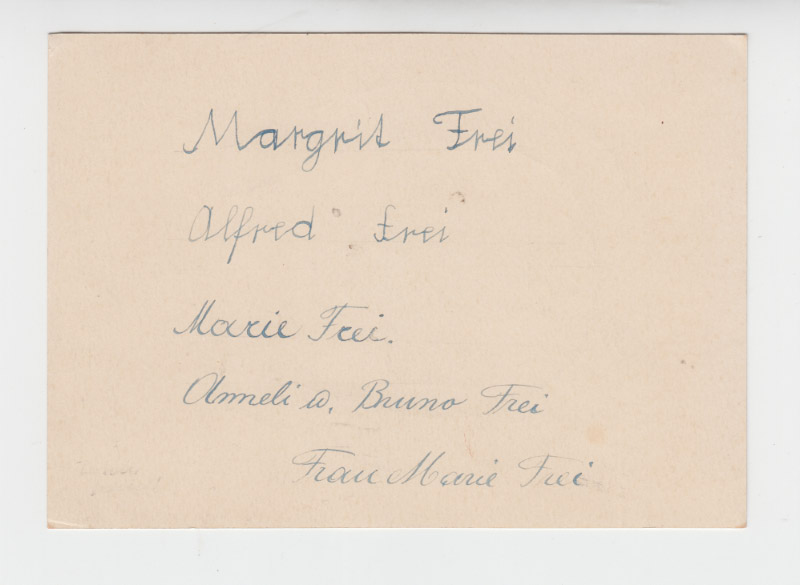 Margrit Frei
Alfred Frei
Marie Frei.
Anneli u. Bruno Frei
Frau Marie Frei